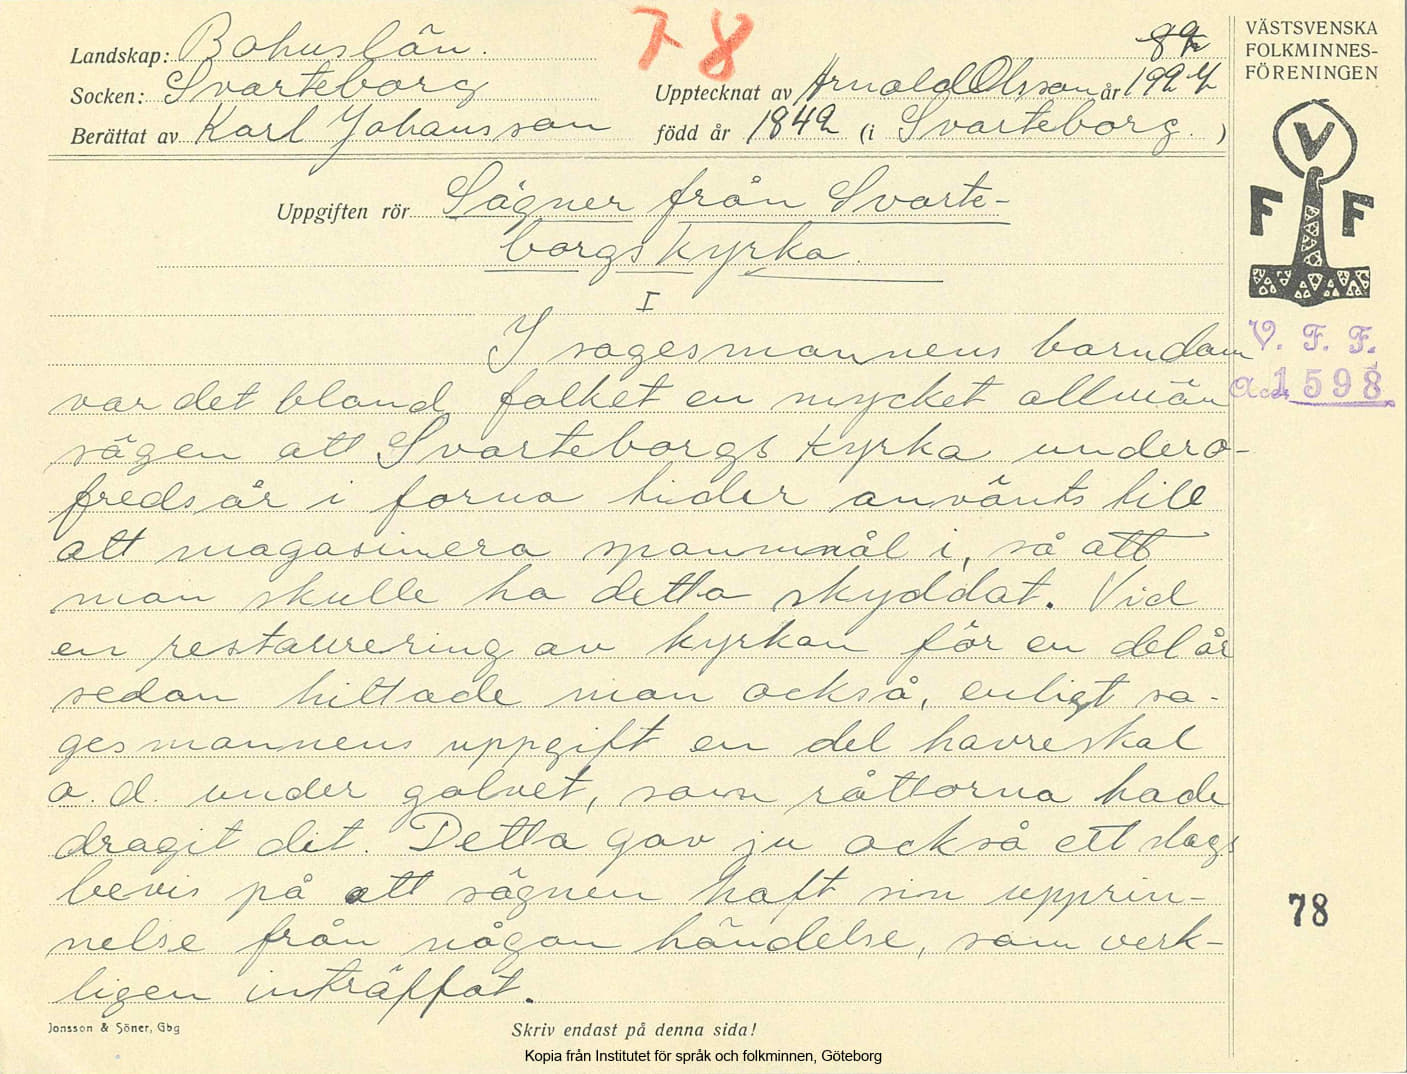 78
Landskap: Bohuslän.
Socken: Svarteborg
Upptecknat av Arnold Olsson år 1927
Berättat av Karl Johansson född år 1842 (i Svarteborg.)
VÄSTSVENSKA
FOLKMINNES-
FÖRENINGEN
V
F F
Uppgiften rör Sägner från Svarte-
borgs kyrka.
I
V. F. F.
Acc. 1598
I sagesmannens barndom
var det bland folket en mycket allmän
sägen att Svarteborgs kyrka undero-
fredsår i forna tider använts till
att magasinera spannmål i, så att
man skulle ha detta skyddat. Vid
en restaurering av kyrkan för en del år
sedan hittade man också, enligt sa-
gesmannens uppgift en del havreskal
o. d. under golvet, som råttorna hade
dragit dit. Detta gav ju också ett slags
bevis på att sägnen haft sin upprin-
nelse från någon händelse, som verk-
ligen inträffat.
78
Jonsson & Söner, Gbg
Skriv endast på denna sida!
Kopia från Institutet för språk och folkminnen, Göteborg